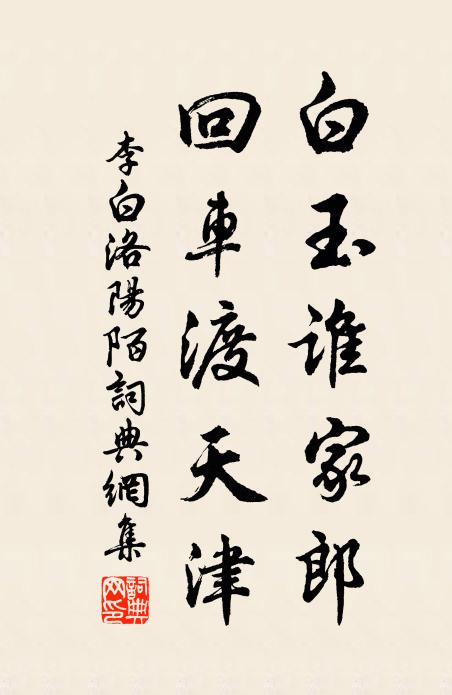 白玉誰家郎
回車渡天津
李白洛陽陌詞典網集
詞典
网印